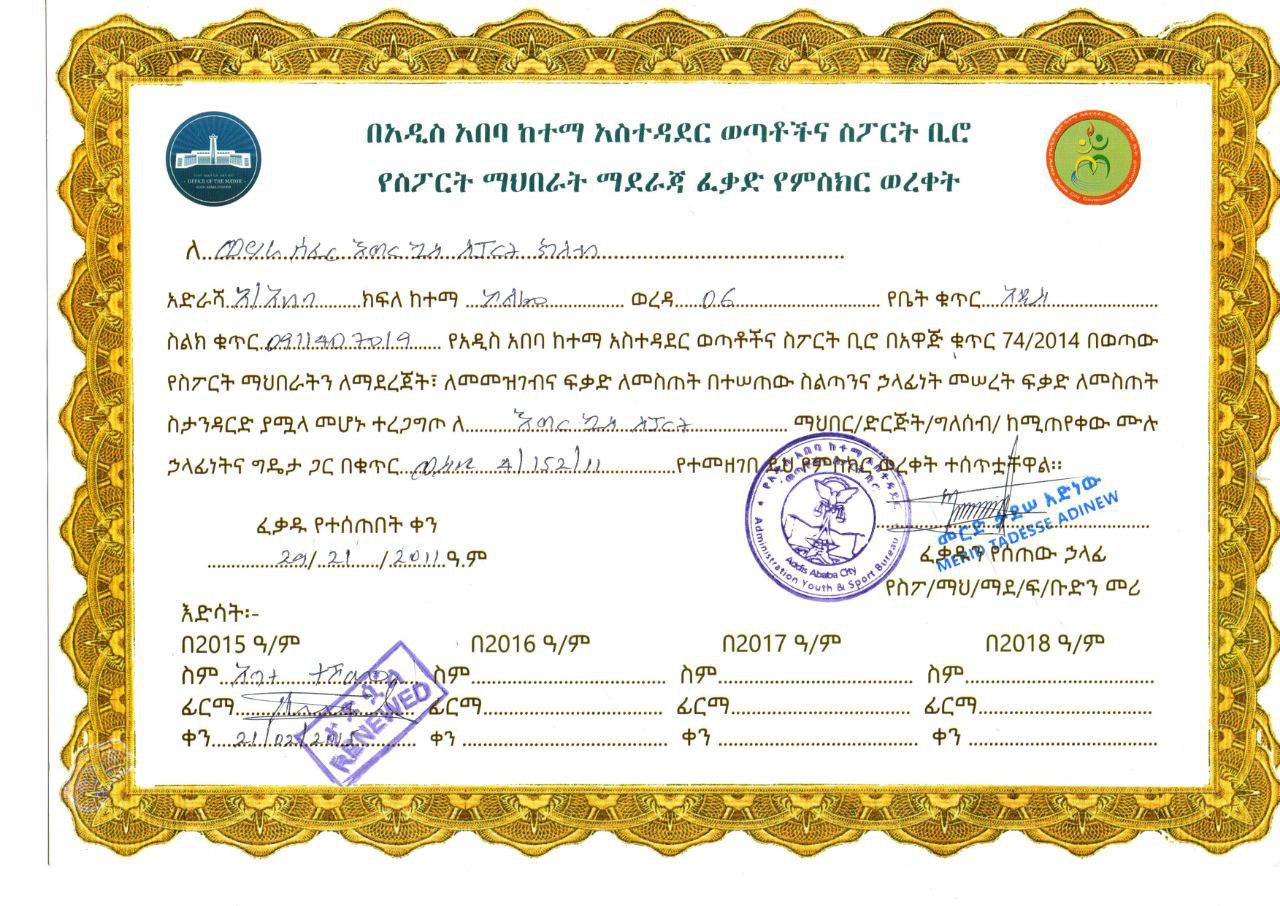 በአዲስ አበባ ከተማ አስተዳደር ወጣቶችና ስፖርት ቢሮ
የስፖርት ማህበራት ማደራጃ ፈቃድ የምስክር ወረቀት
OFFICE OF THE MAYOR
ለ ሰፈር እግር ኳስ ስፖርት ክለብ
አድራሻ አ/አበባ ክፍለ ከተማ ወረዳ 06 የቤት ቁጥር አዲስ
ስልክ ቁጥር 0911407019 የአዲስ አበባ ከተማ አስተዳደር ወጣቶችና ስፖርት ቢሮ በአዋጅ ቁጥር 74/2014 በወጣው
የስፖርት ማህበራትን ለማደረጀት፣ ለመመዝገብና ፍቃድ ለመስጠት በተሠጠው ስልጣንና ኃላፊነት መሠረት ፍቃድ ለመስጠት
ስታንዳርድ ያሟላ መሆኑ ተረጋግጦ ለ እግር ኳስ ስፖርት ማህበር/ድርጅት/ግለሰብ/ ከሚጠየቀው ሙሉ
ኃላፊነትና ግዴታ ጋር በቁጥር 4/152/11 የተመዘገበ ይህ የምስክር ወረቀት ተሰጥቷቸዋል።
የአዲስ አበባ ከተማ አስተዳደር
Addis Ababa City
Administration Youth & Sport Bureau
መርድ ታደሠ አድነው
MERID TADESSE ADINEW
ፈቃዱ የተሰጠበት ቀን
29/21/2011 ዓ.ም
ፈቃዱን የሰጠው ኃላፊ
የስፖ/ማህ/ማደ/ፍ/ቡድን መሪ
እድሳት፡-
በ2015 ዓ/ም በ2016 ዓ/ም በ2017 ዓ/ም በ2018 ዓ/ም
ስም ስም ስም ስም
ፊርማ ፊርማ ፊርማ ፊርማ
ቀን 21/02/2015 ቀን ቀን ቀን
ታድሷል
RENEWED